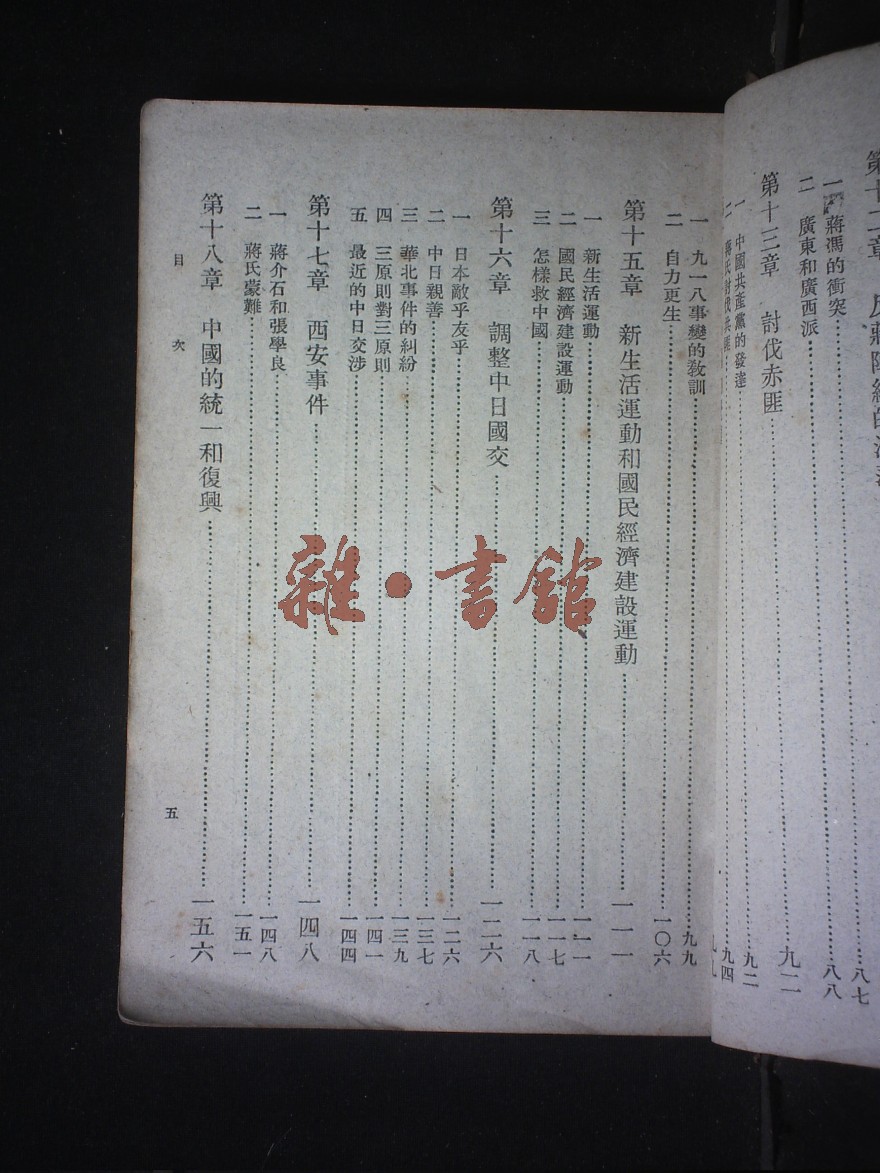 蔣馮的衝突……八七
二 廣東和廣西派……八八
第十三章 討伐赤匪……九二
一 中國共產黨的發達……九二
二 蔣氏討伐共匪……九四
一 九一八事變的教訓……九九
二 自力更生……一〇六
第十五章 新生活運動和國民經濟建設運動……一一一
一 新生活運動……一一一
二 國民經濟建設運動……一一七
三 怎樣救中國……一一八
第十六章 調整中日國交……一二六
一 日本敵乎友乎……一二六
二 中日親善……一三七
三 華北事件的糾紛……一三九
四 三原則對三原則……一四一
五 最近的中日交涉……一四四
第十七章 西安事件……一四八
一 蔣介石和張學良……一四八
二 蔣氏蒙難……一五一
第十八章 中國的統一和復興……一五六
目次
五
雜·書館